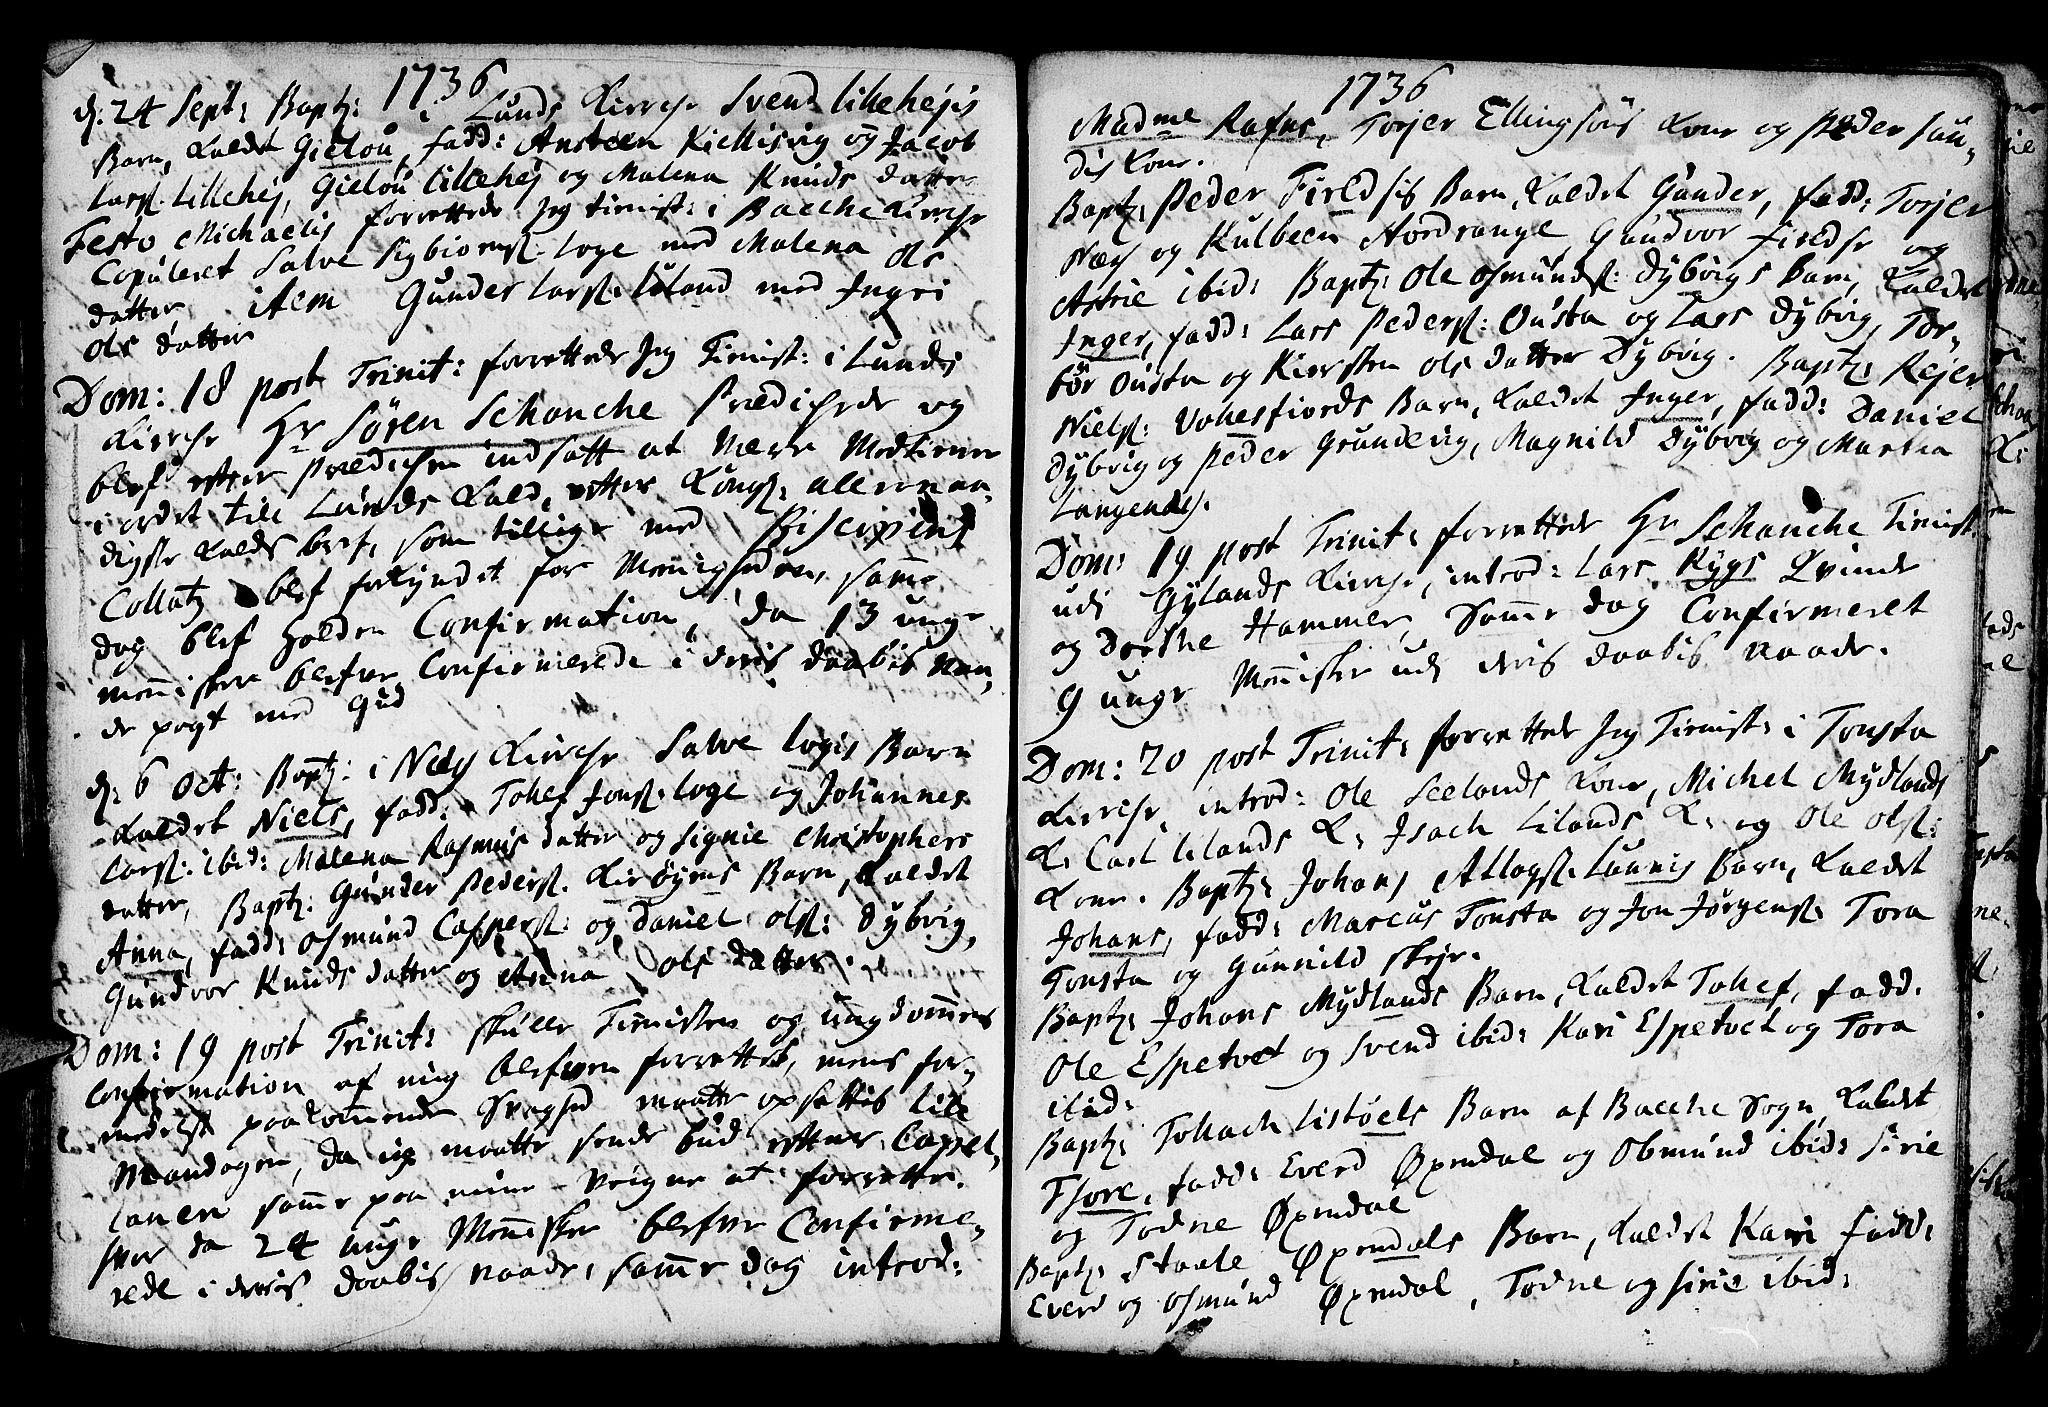 1736
d. 24 Sept: Bapt: i Lunds Kirche Svend Lillehejis
Barn, kaldet Gielou, fadd: Ansteen Kiellisvig og Jacob
Lars: Lillehej, Gielou Lillehej og Malena Knuds datter
Festo Michaelis forrettede Jeg tienist: i Bacche Kirche
Copuleret Salve Sigbiorens: Loge med Malena Ols
datter item Gunder Lars: Liland med Ingri
Ols datter
Dom: 18 post Trinit: forrettede Jeg Tienist: i Lunds
Kirche Hr Søren Schanche Prædichede og
blef efter Prædichen indsatt at være Medtiener
i ordet till Lunds Kald, efter Kongl: allernaa-
digste Kalds bref, som tillige med Biscopens
Collatz blef forkyndet for Menigheden, samme
dag blef holden Confirmation, da 13 unge
mennisker blefve Confirmerede i deris daabis naa-
de pagt med Gud
d. 6 Oct: Bapt: i Næs Kirche Salve Logis Barn
kaldet Niels, fadd: Tolief Jons: Loge og Johannes
Lars: ibid: Malena Rasmus datter og Signie Christophers
datter, Bapt: Gunder Peders: Kirøyens Barn, kaldet
Anna, fadd: Osmund Caspers: og Daniel Ols: Dybvig,
Gundvor Knuds datter og Anna Ols datter.
Dom: 19 post Trinit: skulle Tienisten og ungdommens
Confirmation af mig blefven forrettet, mens for-
medelst paakommende Svaghed maatte opsettis till
Mandagen, da jeg maatte sende bud efter Capel-
lanen samme paa mine Veigne at forrette.
hvor da 24 unge Mennisker blefve Confirme-
rede i deris daabis naade, samme dag introd:
1736
Madme Rafns, Torjer Ellingsøns Kone og Peder Sun-
dis Kone.
Bapt: Peder Fieldsis Barn, kaldet Gunder, fadd: Torjer
Næs og Kulbeen Nordvange, Gundvor Fieldse og
Astrie ibid: Bapt: Ole Osmunds: Dybvigs barn, kaldet
Inger, fadd: Lars Peders: Ousta og Lars Dybvig, Tor-
bør Ousta og Kiersten Ols datter Dybvig. Bapt: Rejer
Niels: Vohesfiords Barn, kaldet Inger, fadd: Daniel
Dybvig og Peder Grundevig, Magnild Dybvig og Martha
Langends.
Dom: 19 post Trinit: forrettede Hr Schanche Tienist:
udi Gylands Kirche, introd: Lars Rygs Qvinde
og Dorthe Hammer, Samme dag Confirmeret
9 unge Mennisker udi deris daabis naade.
Dom: 20 post Trinit: forrettede Jeg Tienist: i Tonsta
Kirche, introd: Ole Seelands Kone, Michel Mydlands
K: Carl Lilands K: Isach Lilands K: og Ole Ols:
Kone. Bapt: Johans Atlogs: Launis Barn, kaldet
Johans, fadd: Marcus Tonsta og Jon Jørgens: Tora
Tonsta og Gunnild Skeje.
Bapt: Johans Mydlands Barn, kaldet Tolief, fadd.
Ole Espetvet og Svend ibid: Kari Espetvet og Tora
ibid:
Bapt: Tollach Listøels Barn af Bacche Sogn, kaldet
Thore, fadd: Everd Øxendal og Obmund ibid: Sirie
og Todne Øxendal
Bapt: Staale Øxendals Barn, kaldet Kari fadd:
Everd og Osmund Øxendal, Todne og Sirie ibid: